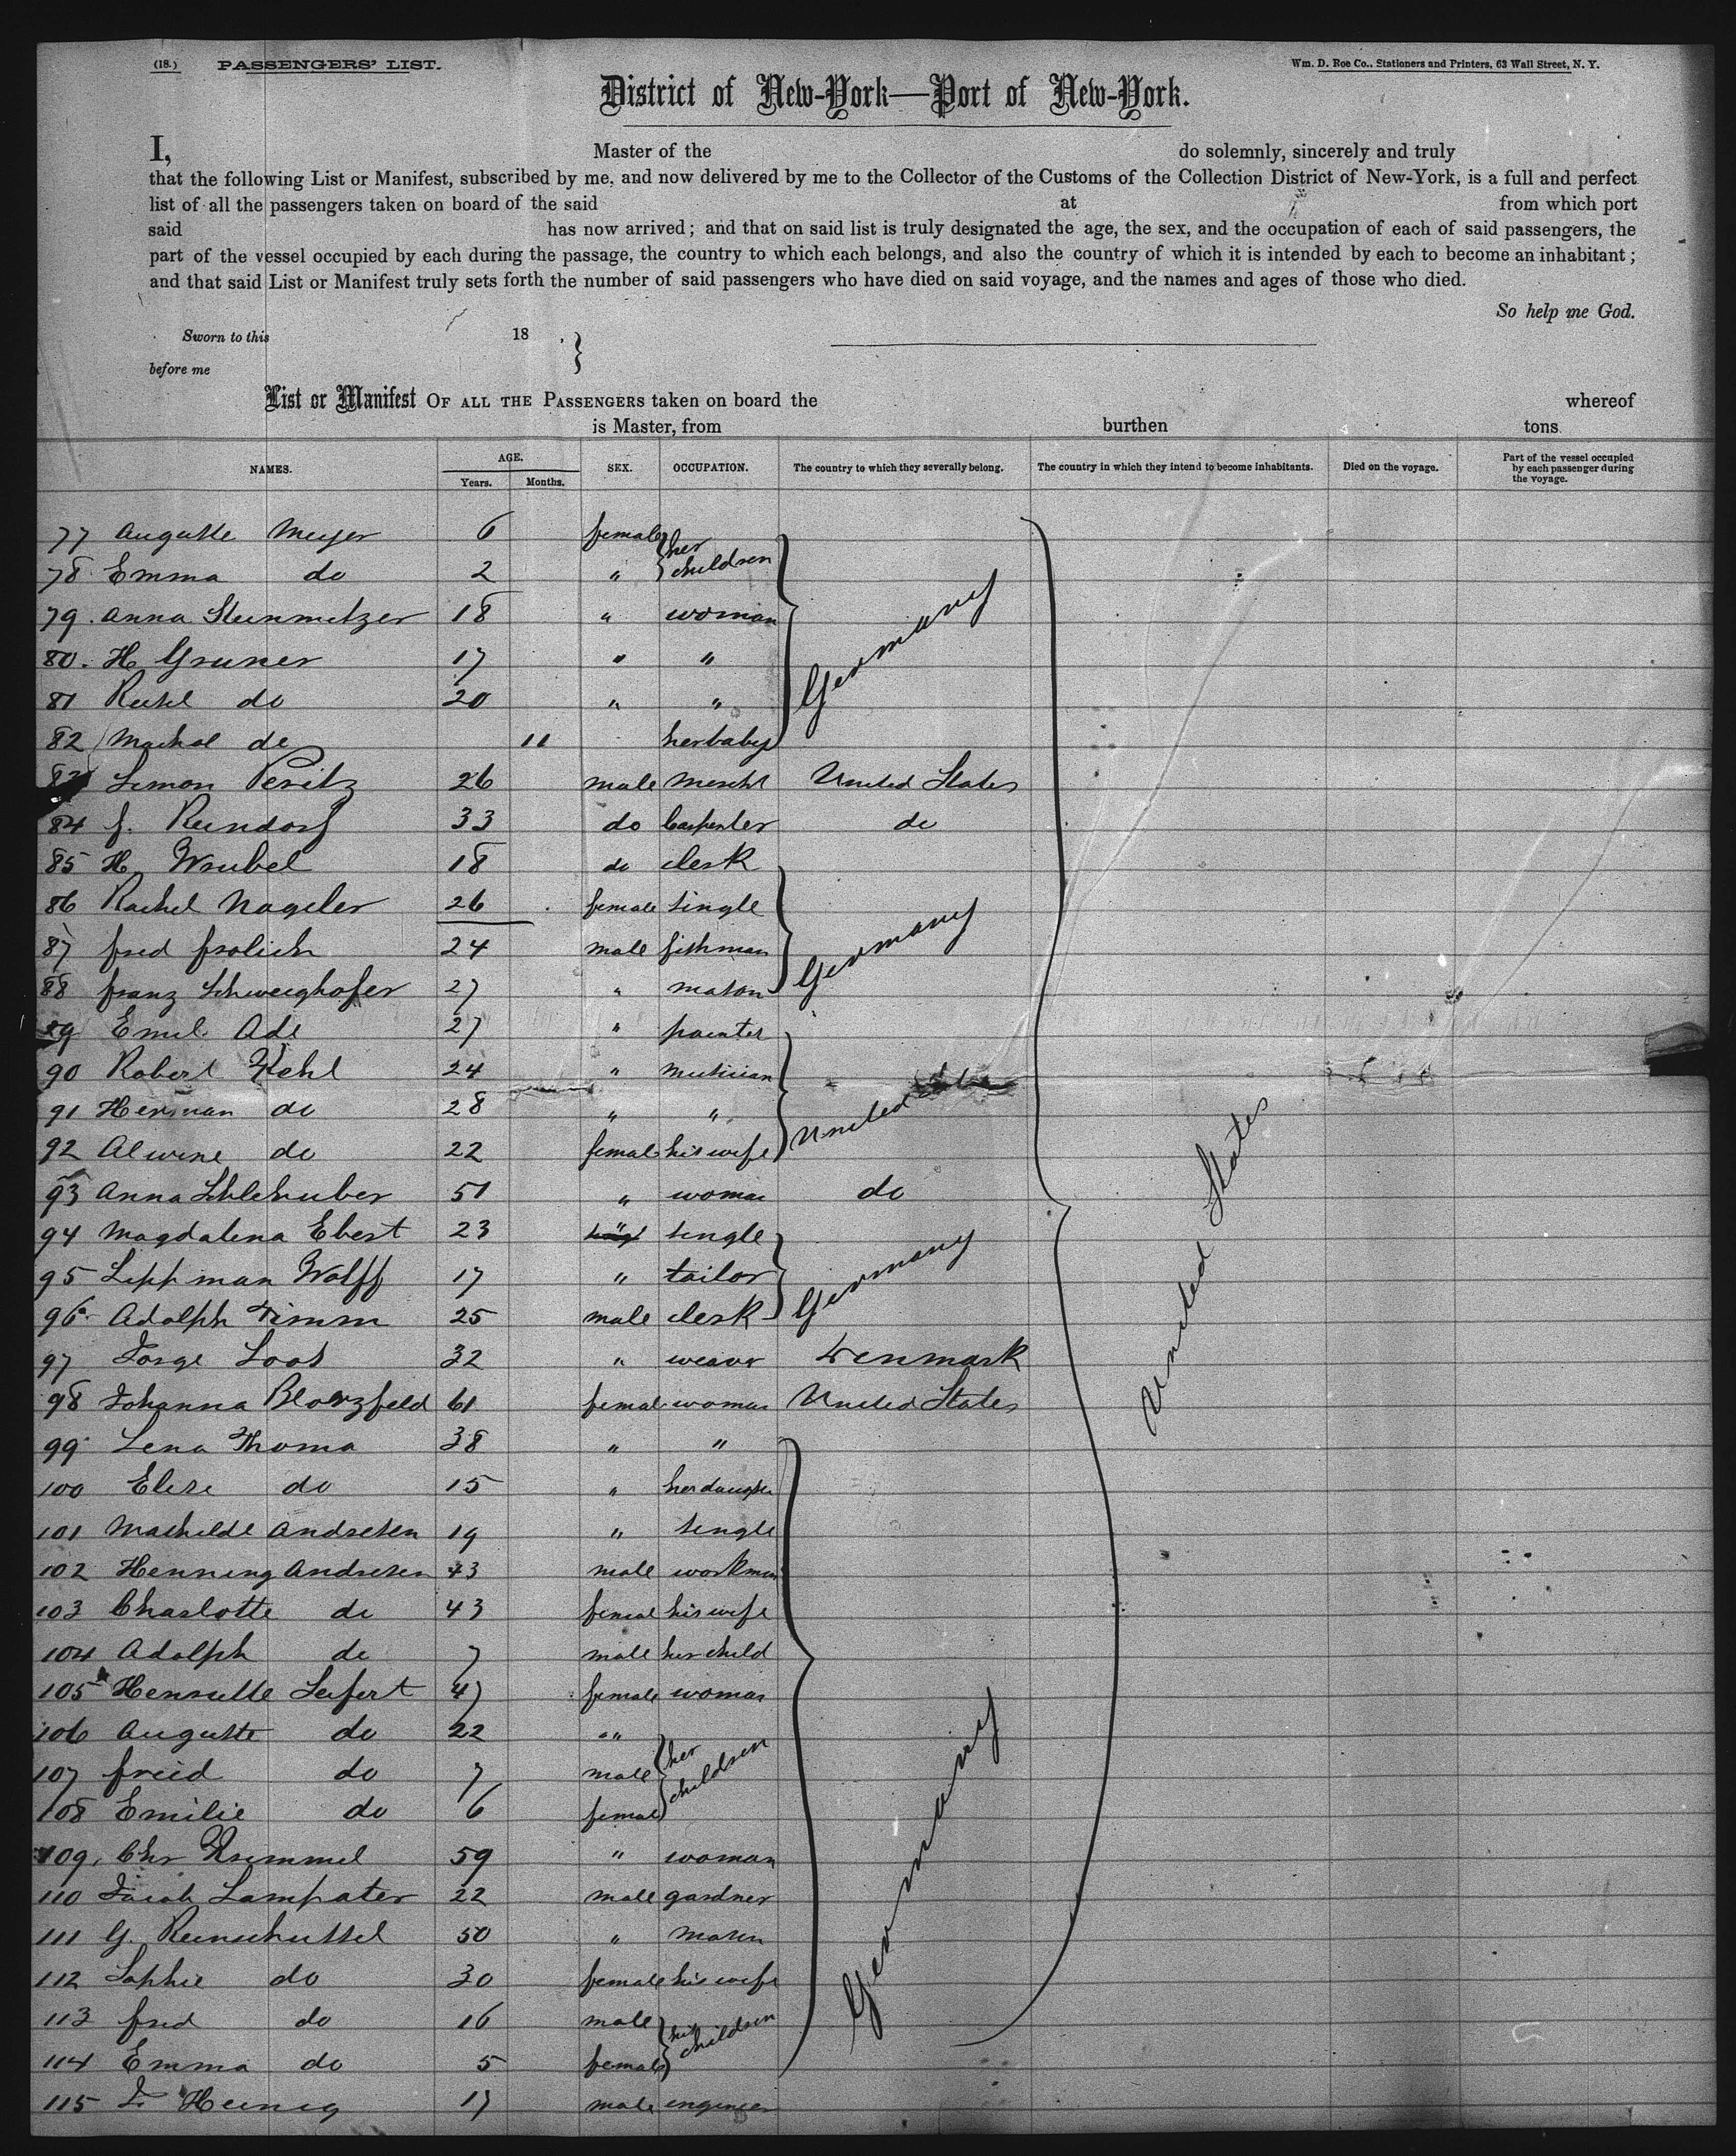 (18.) PASSENGERS' LIST. Wm. D. Roe Co., Stationers and Printers, 63 Wall Street, N. Y.
District of New-York—Port of New-York.
I, Master of the do solemnly, sincerely and truly
that the following List or Manifest, subscribed by me, and now delivered by me to the Collector of the Customs of the Collection District of New-York, is a full and perfect
list of all the passengers taken on board of the said at from which port
said has now arrived; and that on said list is truly designated the age, the sex, and the occupation of each of said passengers, the
part of the vessel occupied by each during the passage, the country to which each belongs, and also the country of which it is intended by each to become an inhabitant;
and that said List or Manifest truly sets forth the number of said passengers who have died on said voyage, and the names and ages of those who died.
So help me God.
Sworn to this 18 ,
before me
List or Manifest OF ALL THE PASSENGERS taken on board the whereof
is Master, from burthen tons
NAMES. AGE. Years. Months. SEX. OCCUPATION. The country to which they severally belong. The country in which they intend to become inhabitants. Died on the voyage. Part of the vessel occupied by each passenger during the voyage.
77 Auguste Meyer 6 female her
78 Emma do 2 " children
79. Anna Steinmetzer 18 " woman
80. H Gruner 17 " " Germany
81 do 20 " "
82 do 11 her baby
83 Simon Peritz 26 male mercht United States
84 f. Reindorf 33 do Carpenter do
85 H Wrubel 18 do clerk
86 Rachel Nageler 26 female single
87 fred frolich 24 male fishman Germany
88 franz Schweighofer 27 " mason
89 Emil Ade 27 " painter
90 Robert Kehl 24 " musician
91 Herman do 28 " " United
92 Alwine do 22 female his wife
93 Anna Schlehuber 51 " woman do
94 Magdalena Ebert 23 " single
95 Lippman Wolff 17 " tailor Germany
96 Adolph Timm 25 male clerk
97 Loos 32 " weaver Denmark
98 Johanna 61 female woman United States
99 Lena Thoma 38 " "
100 Elise do 15 " her daughter
101 Mathilde Andresen 19 " single
102 Henning Andresen 43 male workman
103 Charlotte do 43 female his wife
104 Adolph do 7 male her child
105 Henriette Seifert 47 female woman
106 Auguste do 22 " "
107 freid do 7 male her children
108 Emilie do 6 female
109. Chr Krimmel 59 " woman
110 Jacob Lampater 22 male gardner
111 G. Reinschussel 50 " mason
112 Sophie do 30 female his wife
113 fred do 16 male his
114 Emma do 5 female children
115 Heinig 17 male engineer
Germany
United States